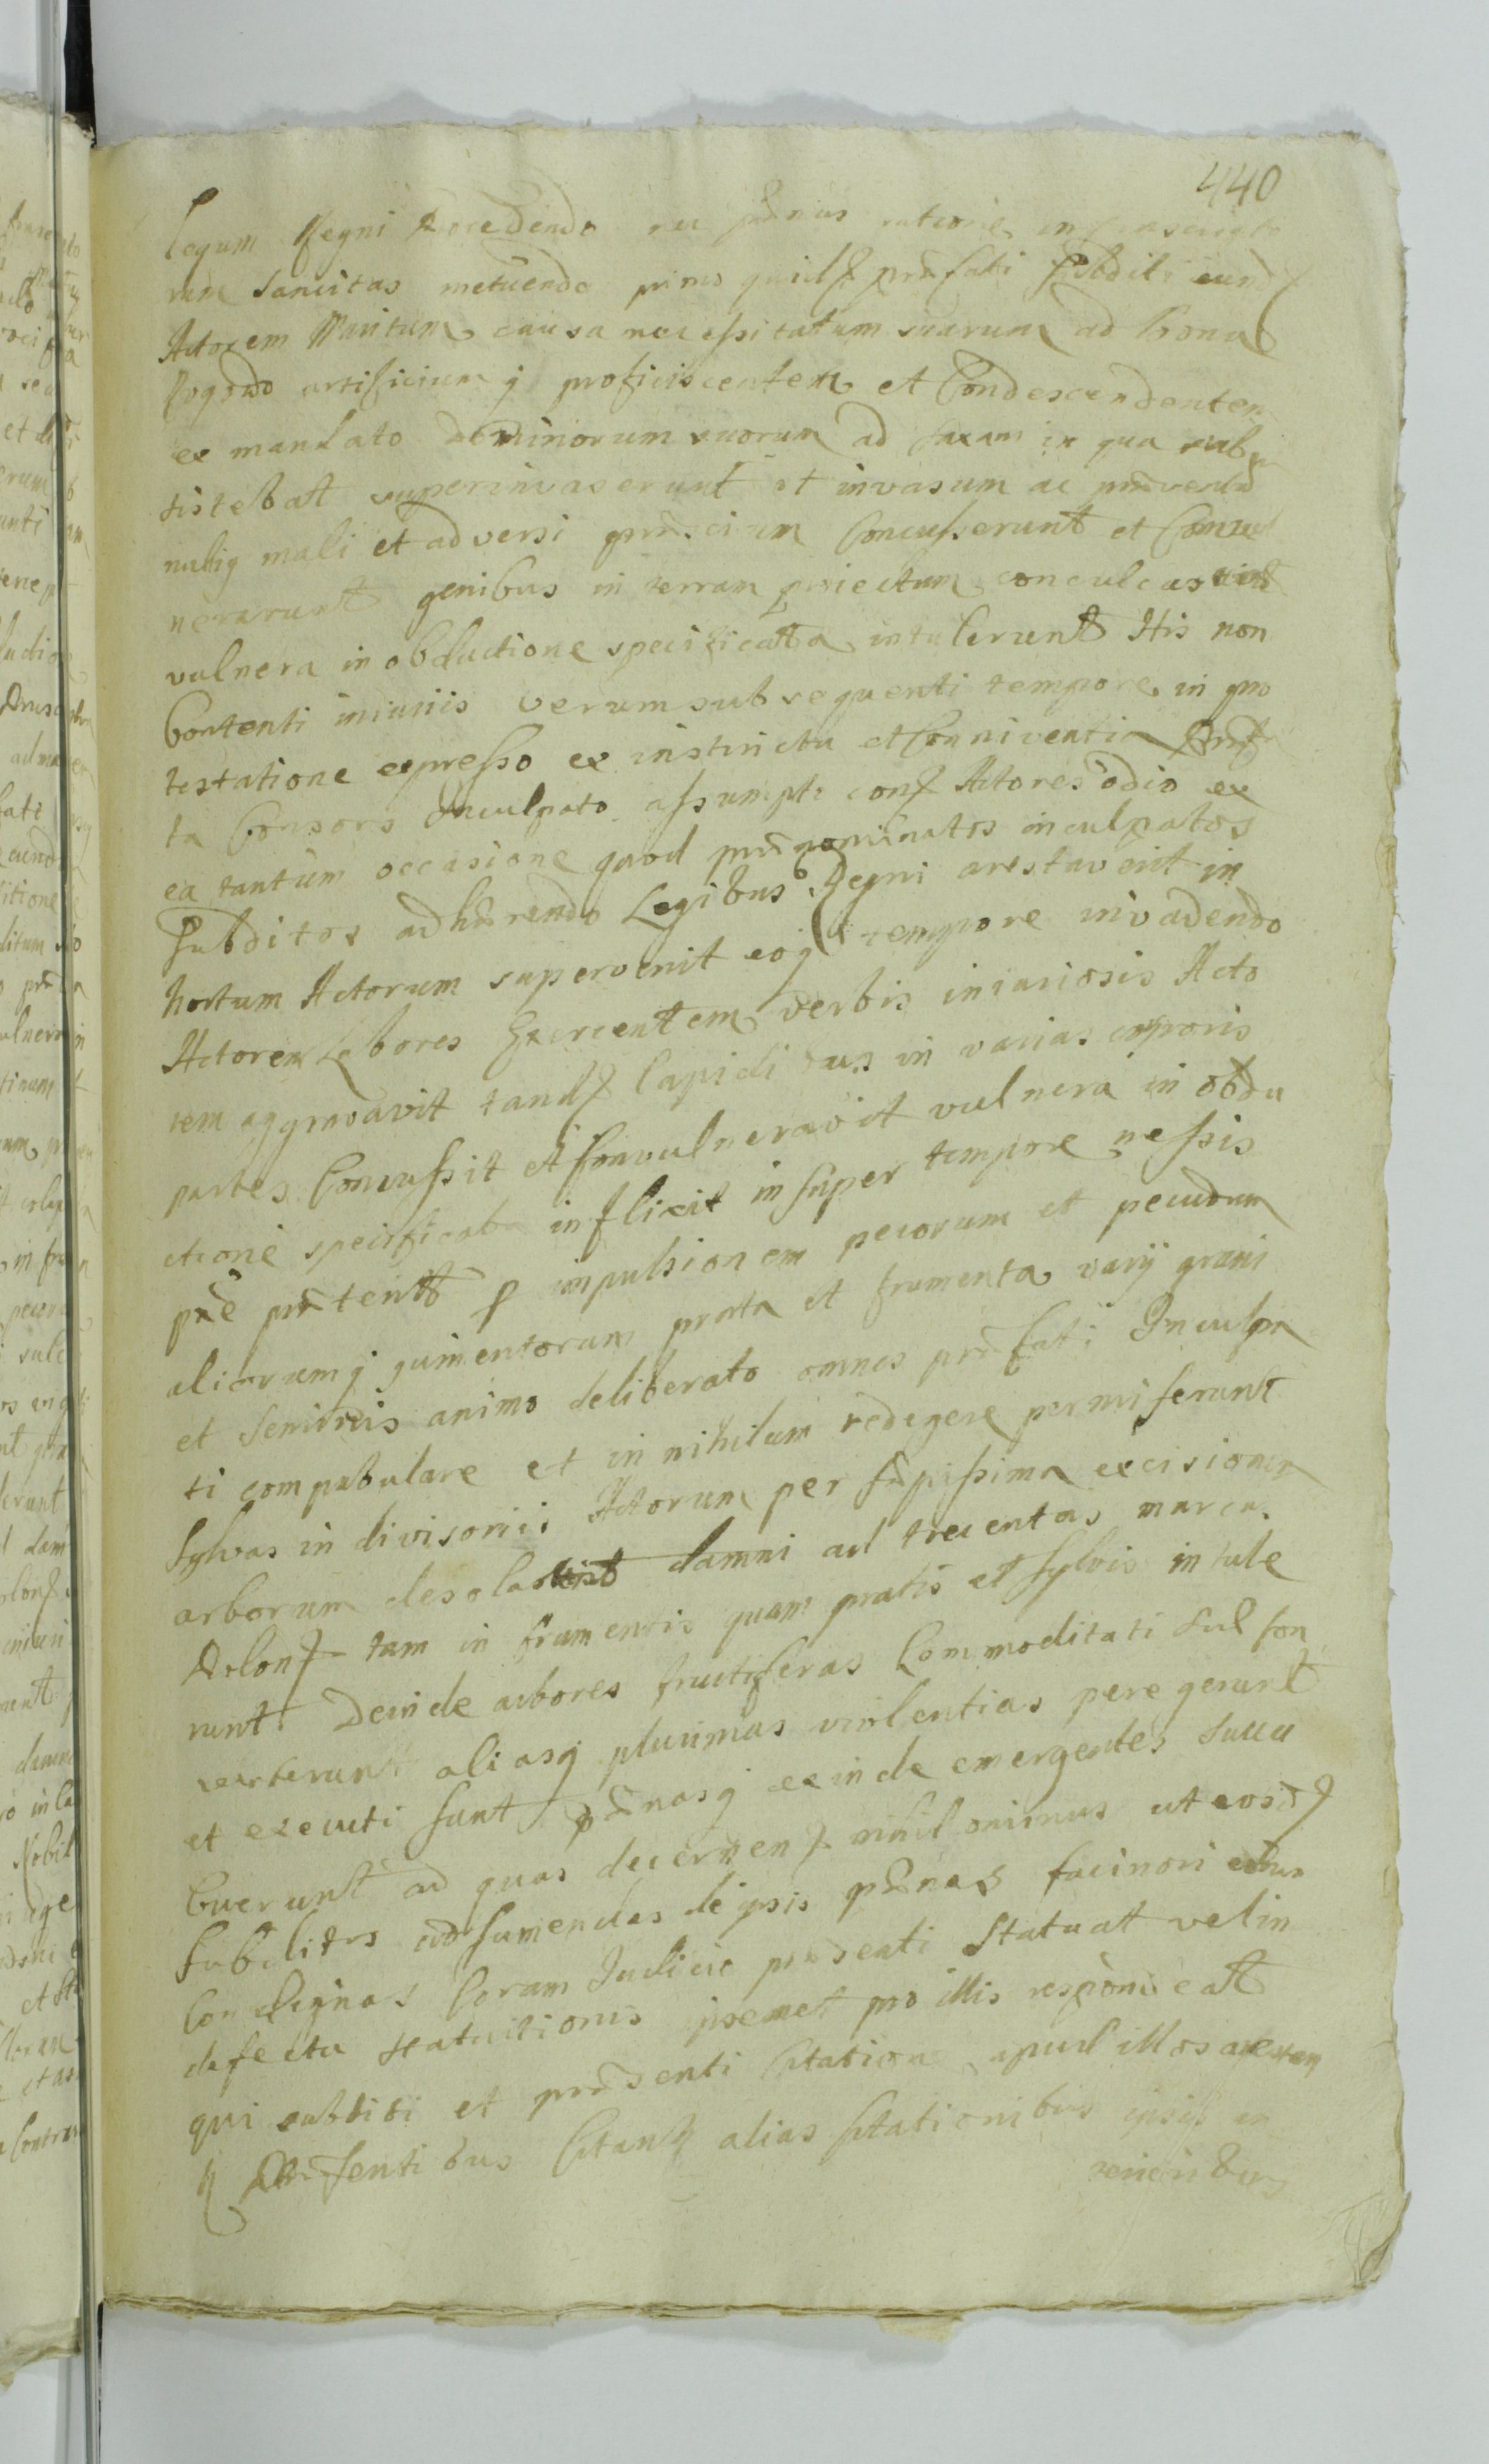 440
legum Regni recedendo nec pœnas ratione
rum sancitas metuendo primo quidē præfati Subditi eund
Actorem Maritum causa necessitatum suarum ad bona
artificiumq proficiscentem et Condescendentem
ex mandato Dominorum suorum ad taxam in qua sub
sistebat superinvaserunt et invasum ac
nullig mali et adversi præscium Concusserunt et Convul
nerarunt genibus in terram proiectum conculcarunt
vulnera in obductione specificata intulerunt His non
Contenti iniuriis verum subsequenti tempore in pro
testatione expresso ex instinctu et Conniventia
ta Consors Inculpato assumpto Actores odio ex
ea tantum occasione quod prænominatos inculpatos
Subditos adhærendo Legibus Regni arestaverit in
hortum Actorum supervenit eoq tempore invadendo
Actorem Labores Exercentem verbis iniuriosis Acto
rem aggravavit tandē lapidibus in varias corporis
partes Concussit et Convulneravit vulnera in obdu
ctione specificata inflixit insuper tempore messis
præ p impulsionem pecorum et pecudum
aliorumq jumentorum prata et frumenta varij grani
et Seminis animo deliberato omnes præfati Inculpa
ti compabulare et in nihilum redegere permiserunt
Sylvas in divisorii Actorum per sæpissima excisionem
arborum desolarunt damni ad trecentas marca.
Polon tam in frumentis quam pratis et sylvis intule
runt. Deinde arbores fructiferas Commoditati suæ con
verterunt aliasq plurimas violentias peregerunt
et executi sunt pœnasq exinde emergentes succu
buerunt ad quas decernen nihilominus ut eosd
subditos ad sumendas de ipsis pœnas facinori eorum
Condignas Coram Iudicio præsenti statuat vel in
defectu statuitionis ipsemet pro illis respondeat
qui subditi et præsenti Citatione apud illos
Præsentibus Citan alias Citationibus ipsis in